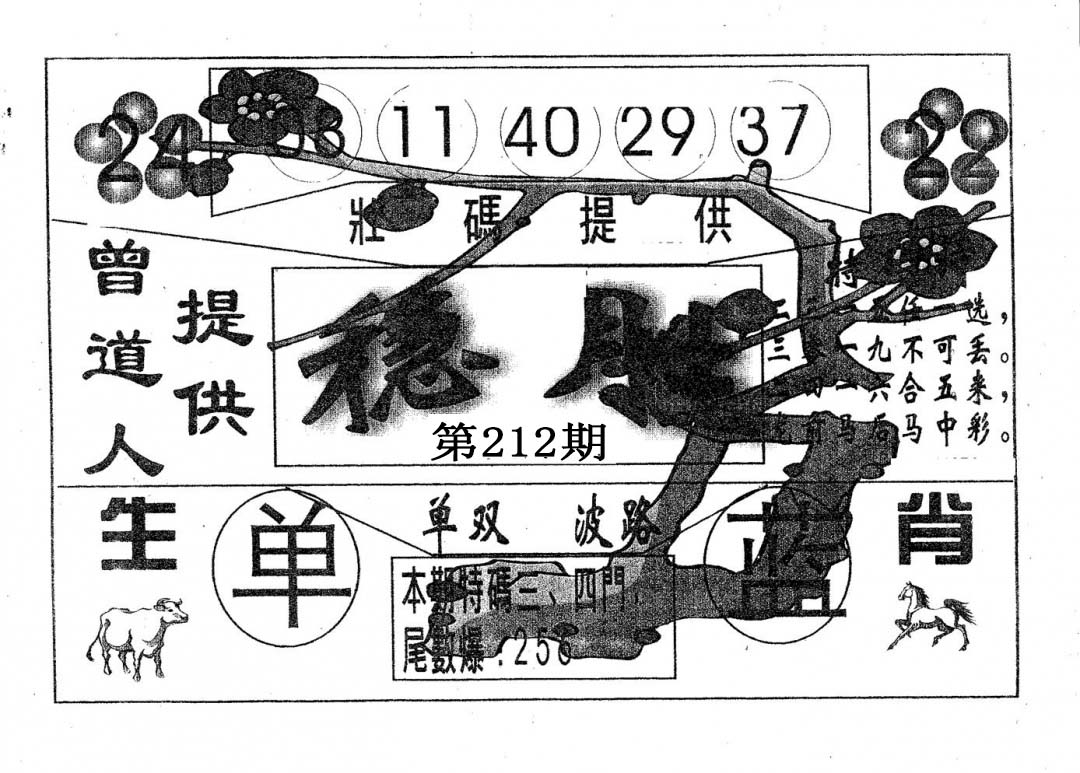 24 03 11 40 29 37 22
壯碼提供
曾道人
提供
特
选，
三 一九不可丢。
一六合五来，
前马后马中彩。
稳胜
第212期
生肖
单
单双 波路
蓝
本期特碼三、四門，
尾數爆:256